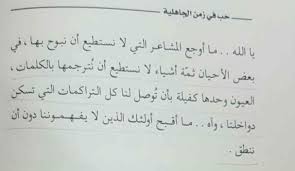 حب في زمن الجاهلية
يا الله .. ما أوجع المشاعر التي لا نستطيع أن نبوح بها، في
بعض الأحيان ثمة أشياء لا نستطيع أن نترجمها بالكلمات،
العيون وحدها كفيلة بأن تُوصل لنا كل التراكمات التي تسكن
دواخلنا، وآه .. ما أقبح أولئك الذين لا يفهموننا دون أن
ننطق.